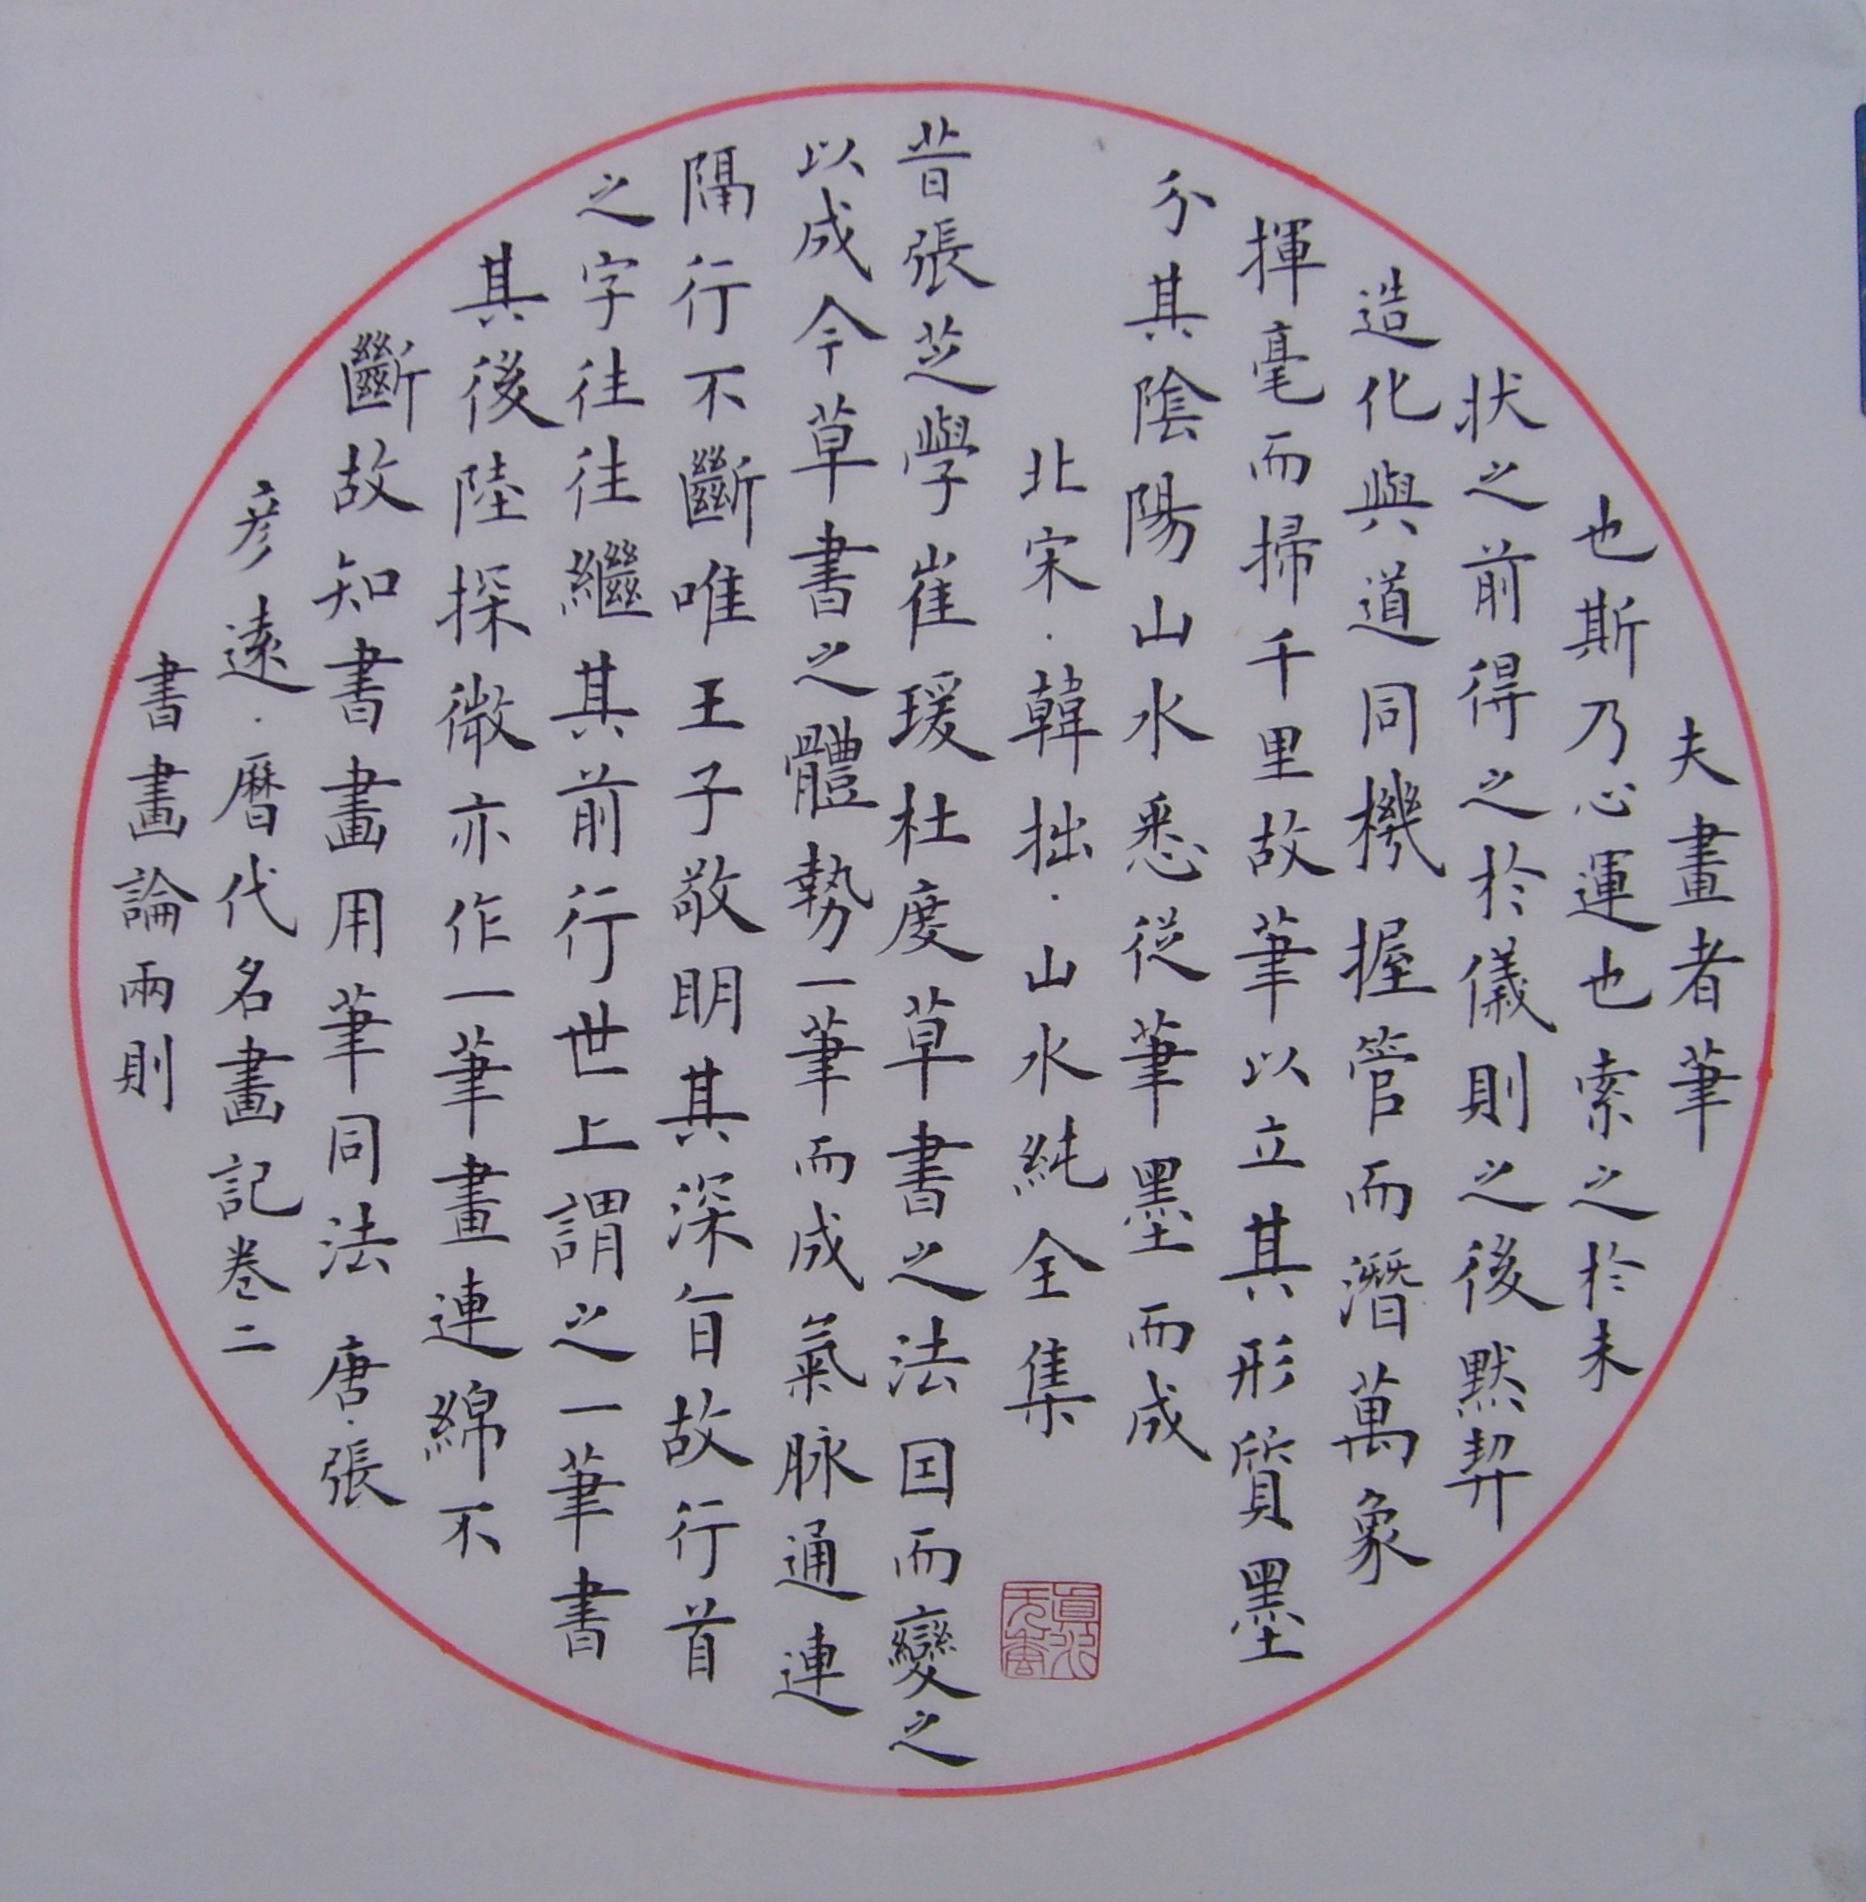 夫畫者筆
也斯乃心運也索之於未
状之前得之於儀則之後黙契
造化與道同機握管而潛萬象
揮毫而掃千里故筆以立其形質墨
分其陰陽山水悉從筆墨而成
北宋·韓拙·山水純全集
昔張芝學崔瑗杜度草書之法因而變之
以成今草書之體勢一筆而成氣脉通連
隔行不斷唯王子敬明其深旨故行首
之字往往繼其前行世上謂之一筆書
其後陸探微亦作一筆畫連綿不
斷故知書畫用筆同法 唐·張
彥遠·曆代名畫記卷二
書畫論兩則